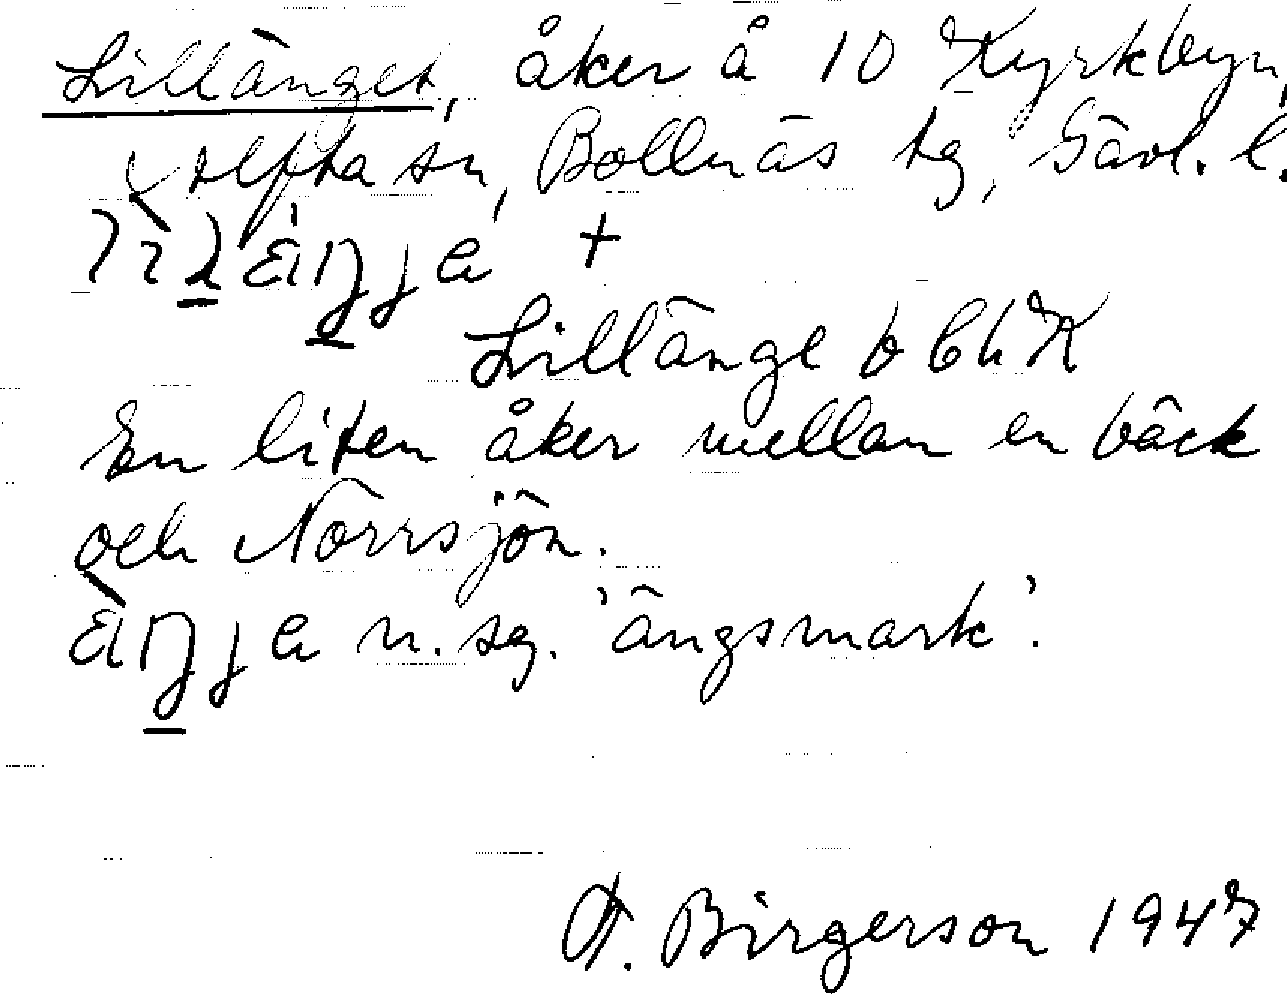 Lillänget, åker å 10 Kyrkbyn,
Alfta sn, Bollnäs tg, Gävl. l.
+
Lillänge
En liten åker mellan en bäck
och Norrsjön.
äŋje n. sg. 'ängsmark'.
A. Birgerson 1947